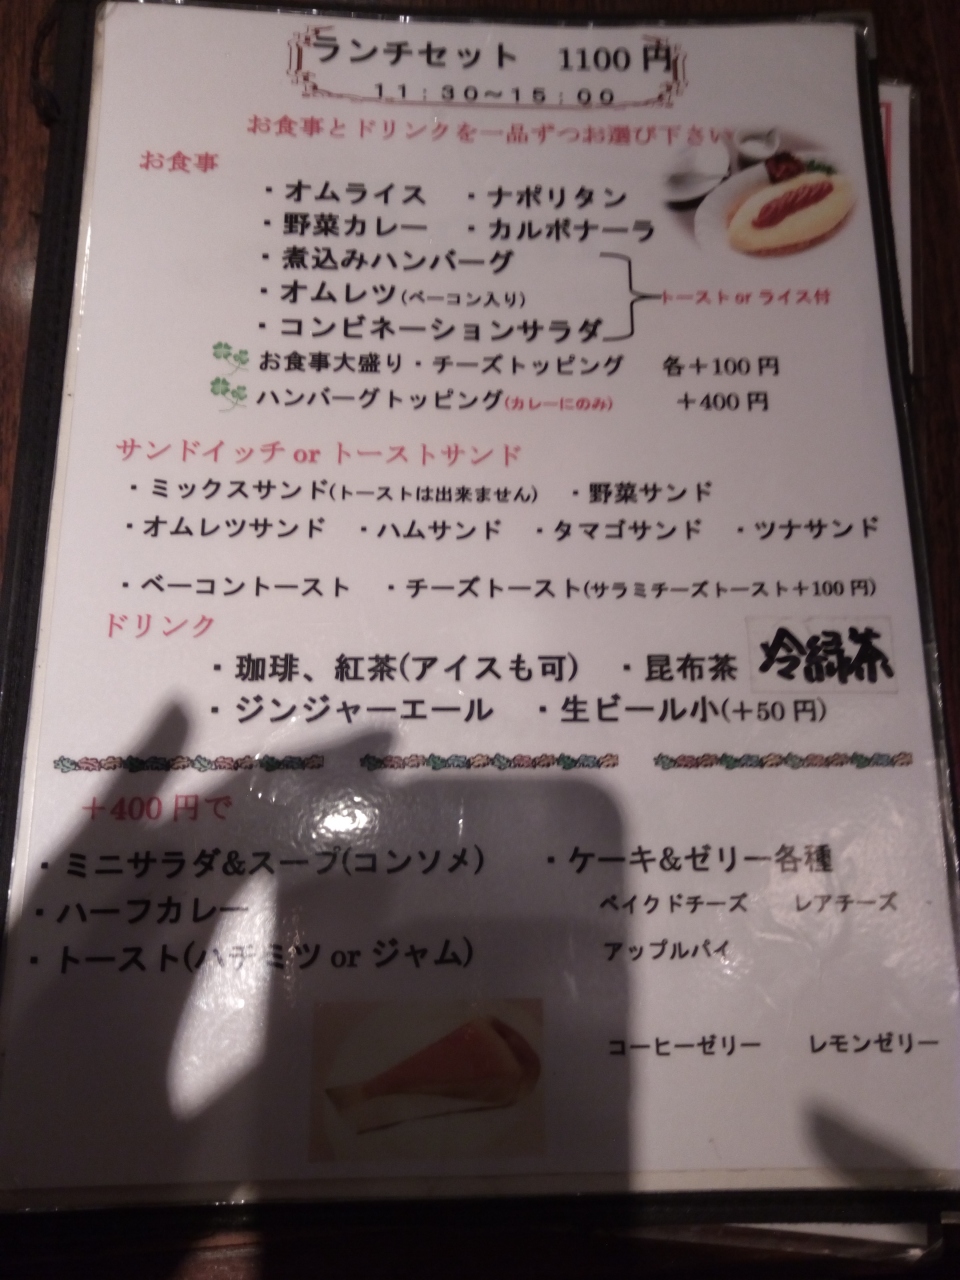 ランチセット 1100円
11:30〜15:00
お食事とドリンクを一品ずつお選び下さい
お食事
・オムライス ・ナポリタン
・野菜カレー ・カルボナーラ
・煮込みハンバーグ
・オムレツ(ベーコン入り) トーストorライス付
・コンビネーションサラダ
お食事大盛り・チーズトッピング 各+100円
ハンバーグトッピング(カレーにのみ) +400円
サンドイッチorトーストサンド
・ミックスサンド(トーストは出来ません) ・野菜サンド
・オムレツサンド ・ハムサンド ・タマゴサンド ・ツナサンド
・ベーコントースト ・チーズトースト(サラミチーズトースト+100円)
ドリンク
・珈琲、紅茶(アイスも可) ・昆布茶 冷緑茶
・ジンジャーエール ・生ビール小(+50円)
+400円で
・ミニサラダ&スープ(コンソメ) ・ケーキ&ゼリー各種
・ハーフカレー ベイクドチーズ レアチーズ
・トースト(ハチミツorジャム) アップルパイ
コーヒーゼリー レモンゼリー